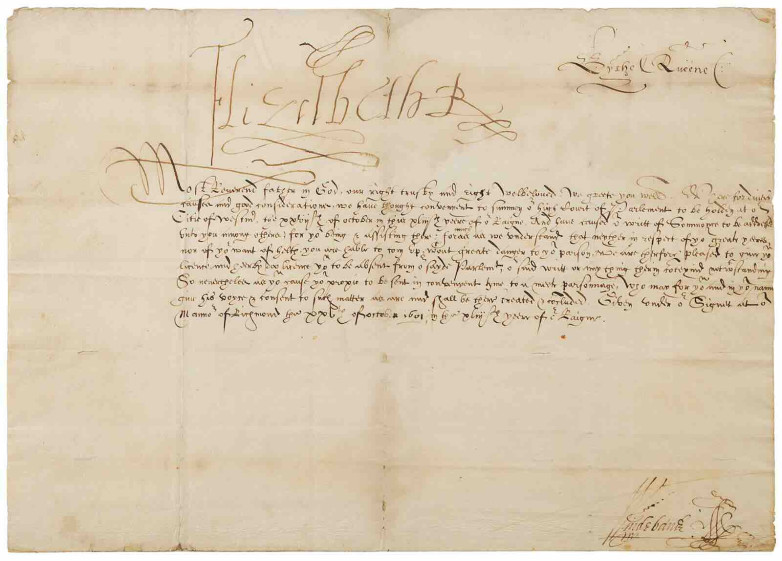 Elizabeth R
By the Queene
Most Reverend father in God, our right trusty and right Welbeloved, We greete you well. Whereas for divers
causes and good consideracions, we have thought convenient to sumon oʳ high Court of Parlement to be holden at oʳ
Citie of Westmʳ the xxvijᵗʰ of October in the xliijᵗʰ yeare of oʳ Raigne And have caused oʳ writt of Somonns to be addressed
unto you among others, for yoʳ being & assisting there; forasmuch as we understand that neither in respect of yoʳ greate yeares,
nor of yoʳ want of helth you are hable to com up without greate daunger to yoʳ person, We are therfore pleased to give you
licence, and herby doe licence yoʳ to be absent from oʳ sayde Parlemᵗ, oʳ said writt or any thing therin conteyned notwᵗʰstanding
So neverthelesse as you cause yoʳ proxie to be sent in convenient time to a meete parsonage, who may for you and in yoʳ name
give his voyce & consent to such matters as are and shall be there treated & concluded. Given under oʳ Signet at oʳ
Mannoʳ of Richmond the xxᵗʰ of October 1601, in the xliijᵗʰ yeare of oʳ Raigne.
Windebank